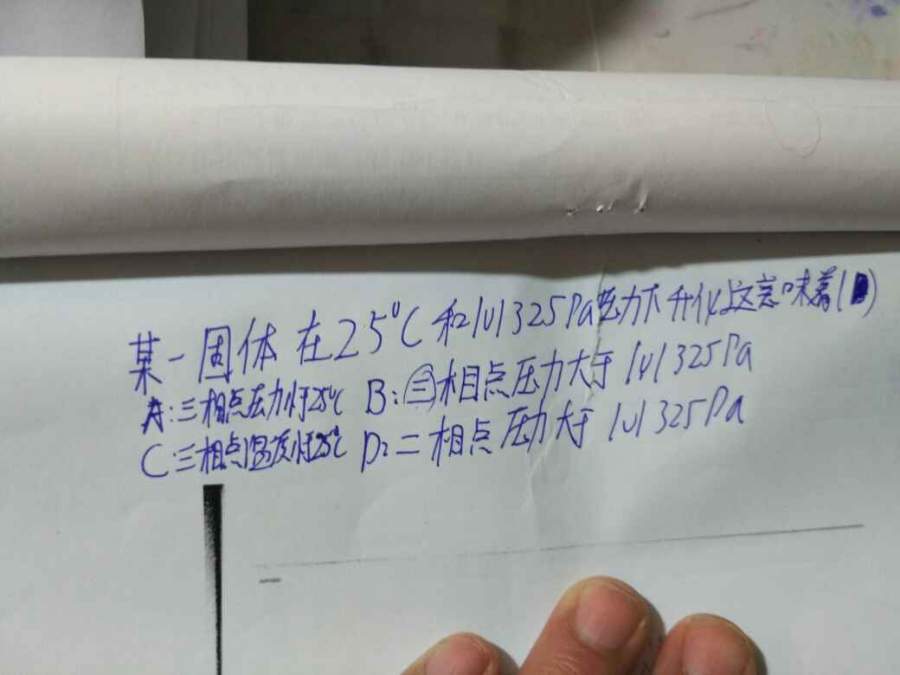 某一固体在25℃和101325Pa压力下升化这意味着(B)
A:三相点压力小于25℃ B:三相点压力大于101325Pa
C:三相点温度小于25℃ D:二相点压力大于101325Pa